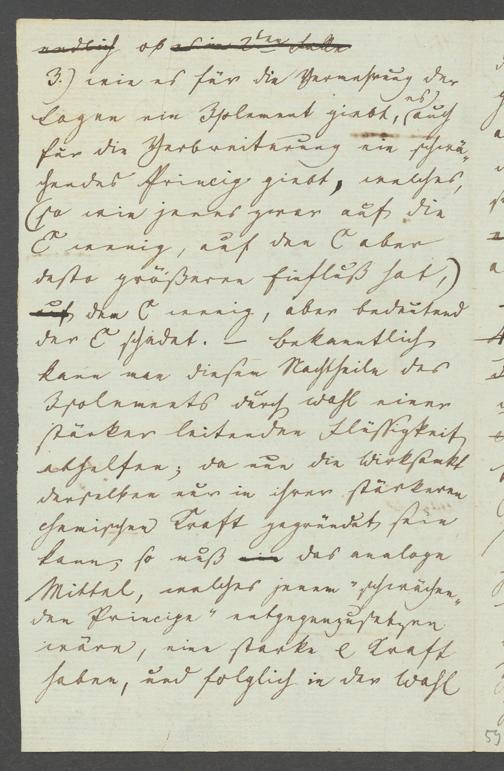 endlich ob es im 2ten Falle
3.) wie es für die Vermehrung der
Lagen ein Isolement giebt, (es) auch
für die Verbreiterung ein schwä-
chendes Princip giebt, welches,
(so wie jenes zwar auf die
E wenig, auf den C aber
desto größeren Einfluß hat,)
auf den C wenig, aber bedeutend
der E schadet. – Bekanntlich
kann man diesem Nachtheile des
Isolements durch Wahl einer
stärker leitenden Flüssigkeit
abhelfen; da nun die Wirksamkt
derselben nur in ihrer stärkeren
chemischen Kraft gegründet sein
kann, so muß ein das analoge
Mittel, welches jenem "schwächen-
den Principe" entgegenzusetzen
wäre, eine starke e Kraft
haben, und folglich in der Wahl
59